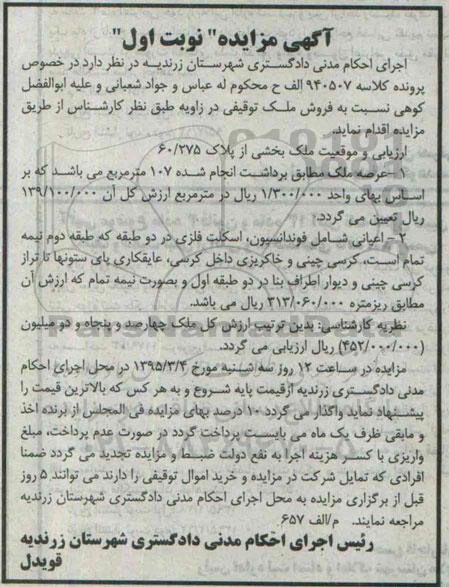 آگهی مزایده" نوبت اول"
اجرای احکام مدنی دادگستری شهرستان زرندیه در نظر دارد در خصوص
پرونده کلاسه ۹۴۰۵۰۷ الف ح محکوم له عباس و جواد شعبانی و علیه ابوالفضل
کوهی نسبت به فروش ملک توقیفی در زاویه طبق نظر کارشناس از طریق
مزایده اقدام نماید.
ارزیابی و موقعیت ملک بخشی از پلاک ۶۰/۲۷۵
۱ -عرصه ملک مطابق برداشت انجام شده ۱۰۷ مترمربع می باشد که بر
اساس بهای واحد ۱/۳۰۰/۰۰۰ ریال در مترمربع ارزش کل آن ۱۳۹/۱۰۰/۰۰۰
ریال تعیین می گردد.
۲- اعیانی شامل فوندانسیون، اسکلت فلزی در دو طبقه که طبقه دوم نیمه
تمام است، کرسی چینی و خاکریزی داخل کرسی، عایقکاری پای ستونها تا تراز
کرسی چینی و دیوار اطراف بنا در دو طبقه اول و بصورت نیمه تمام که ارزش آن
مطابق ریزمتره ۳۱۳/۰۶۰/۰۰۰ ریال می باشد.
نظریه کارشناسی: بدین ترتیب ارزش کل ملک چهارصد و پنجاه و دو میلیون
(۴۵۲/۰۰۰/۰۰۰) ریال ارزیابی می گردد.
مزایده در ساعت ۱۲ روز سه شنبه مورخ ۱۳۹۵/۳/۴ در محل اجرای احکام
مدنی دادگستری زرندیه ازقیمت پایه شروع و به هر کس که بالاترین قیمت را
پیشنهاد نماید واگذار می گردد ۱۰ درصد بهای مزایده فی المجلس از برنده اخذ
و مابقی ظرف یک ماه می بایست پرداخت گردد در صورت عدم پرداخت، مبلغ
واریزی با کسر هزینه اجرا به نفع دولت ضبط و مزایده تجدید می گردد ضمنا
افرادی که تمایل شرکت در مزایده و خرید اموال توقیفی را دارند می توانند ۵ روز
قبل از برگزاری مزایده به محل اجرای احکام مدنی دادگستری شهرستان زرندیه
مراجعه نمایند. م/الف ۶۵۷
رئیس اجرای احکام مدنی دادگستری شهرستان زرندیه
قویدل